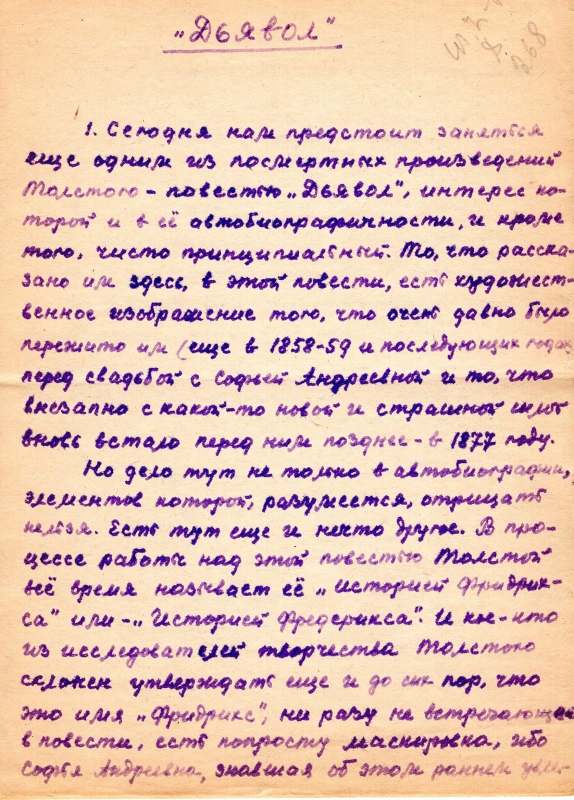 „Дьявол"
268
1. Сегодня нам предстоит заняться
еще одним из посмертных произведений
Толстого – повестью „Дьявол", интерес ко-
торой и в её автобиографичности, и кроме
того, чисто принципиальный. То, что расска-
зано им здесь, в этой повести, есть художест-
венное изображение того, что очень давно было
пережито им (еще в 1858-59 и последующих годах
перед свадьбой с Софьей Андреевной и то, что
внезапно с какой-то новой и страшной силой
вновь встало перед ним позднее – в 1877 году.
Но дело тут не только в автобиографии,
элементов которой, разумеется, отрицать
нельзя. Есть тут еще и нечто другое. В про-
цессе работы над этой повестью Толстой
всё время называет её „Историей Фридрик-
са" или – „Историей Фредерикса". И кое-кто
из исследователей творчества Толстого
склонен утверждать еще и до сих пор, что
это имя „Фридрикс", ни разу не встречающееся
в повести, есть попросту маскировка, ибо
Софья Андреевна, знавшая об этом раннем увле-